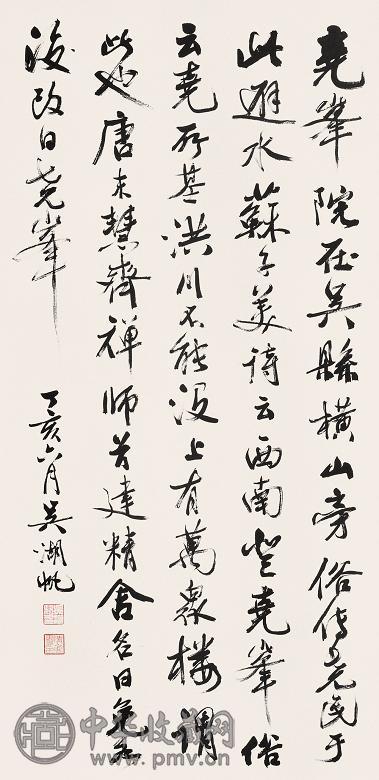 堯峯院在吳縣橫山旁俗傳堯民于
此避水蘇子美詩云西南登堯峯俗
云堯所基洪川不能没上有萬衆棲謂
此也唐末慧齊禪師首建精舍名曰免水
後改曰堯峯
丁亥六月吳湖帆
中华收藏网
www.pmv.cn